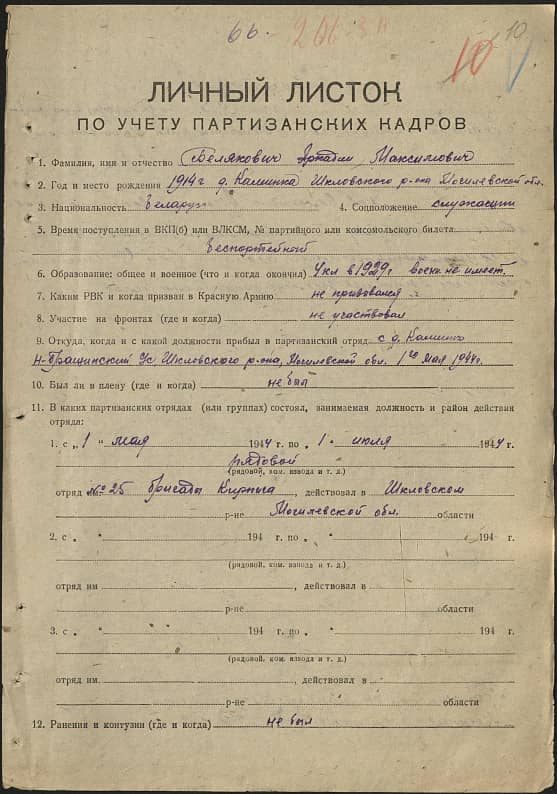 66.
10
10
ЛИЧНЫЙ ЛИСТОК
ПО УЧЕТУ ПАРТИЗАНСКИХ КАДРОВ
1. Фамилия, имя и отчество Белякович Аркадий Максимович
2. Год и место рождения 1914 г д. Калинка Шкловского р-она Могилевской обл.
3. Национальность Беларус 4. Соцположение служащий
5. Время поступления в ВКП(б) или ВЛКСМ, № партийного или комсомольского билета
беспортейный
6. Образование: общее и военное (что и когда окончил) 4 кл в 1929 г военн. не имеет.
7. Каким РВК и когда призван в Красную Армию не призвался
8. Участие на фронтах (где и когда) не участвовал
9. Откуда, когда и с какой должности прибыл в партизанский отряд с д. Калинка
Шкловского р-она, Могилевской обл. 1го мая 1944г.
10. Был ли в плену (где и когда) не был
11. В каких партизанских отрядах (или группах) состоял, занимаемая должность и район действия
отряда:
1. с „ 1 " мая 1944 г. по „ 1 " июля 1944 г.
рядовой
(рядовой, ком. взвода и т. д.)
отряд № 25 бригады Кирпича, действовал в Шкловском
р-не Могилевской обл. области
2. с „ " 194 г. по „ " 194 г.
(рядовой, ком. взвода и т. д.)
отряд им , действовал в
р-не области
3. с „ " 194 г. по „ " 194 г.
(рядовой, ком. взвода и т. д.)
отряд им. , действовал в
р-не области
12. Ранения и контузии (где и когда) не был